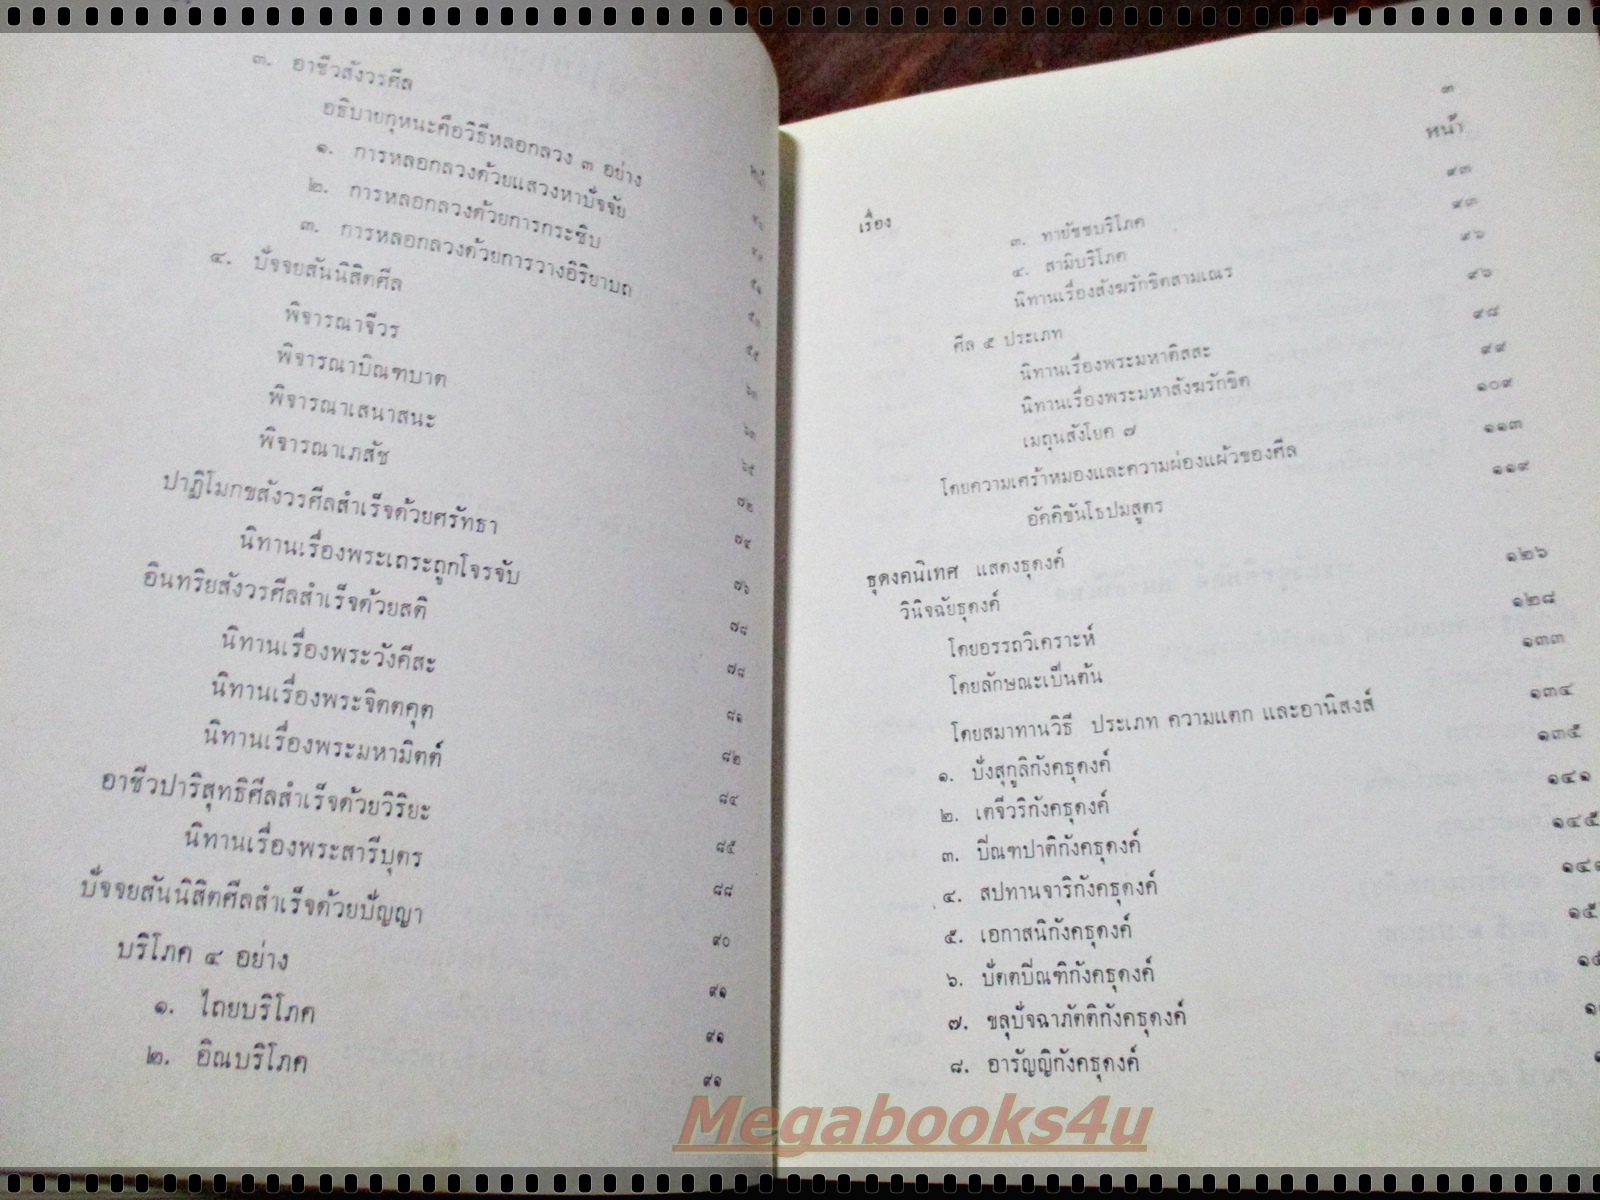 ๓. อาชีวสังวรศีล
อธิบายกุหนะคือวิธีหลอกลวง ๓ อย่าง
๑. การหลอกลวงด้วยแสวงหาปัจจัย
๒. การหลอกลวงด้วยการกระซิบ
๓. การหลอกลวงด้วยการวางอิริยาบถ
๔. ปัจจยสันนิสิตศีล
พิจารณาจีวร
พิจารณาบิณฑบาต
พิจารณาเสนาสนะ
พิจารณาเภสัช
ปาฏิโมกขสังวรศีลสำเร็จด้วยศรัทธา
นิทานเรื่องพระเถระถูกโจรจับ
อินทริยสังวรศีลสำเร็จด้วยสติ
นิทานเรื่องพระวังคีสะ
นิทานเรื่องพระจิตตคุต
นิทานเรื่องพระมหามิตต์
อาชีวปาริสุทธิศีลสำเร็จด้วยวิริยะ
นิทานเรื่องพระสารีบุตร
ปัจจยสันนิสิตศีลสำเร็จด้วยปัญญา
บริโภค ๔ อย่าง
๑. ไถยบริโภค
๒. อิณบริโภค
หน้า
๗๒
๗๔
๗๖
๗๘
๗๘
๘๑
๘๒
๘๔
๘๕
๘๘
๙๐
๙๑
๙๑
๙๑
๓
เรื่อง หน้า
๓. ทายัชชบริโภค ๙๓
๔. สามิบริโภค ๙๓
นิทานเรื่องสังฆรักขิตสามเณร ๙๖
ศีล ๕ ประเภท ๙๖
นิทานเรื่องพระมหาติสสะ ๙๘
นิทานเรื่องพระมหาสังฆรักขิต ๙๙
เมถุนสังโยค ๗ ๑๐๙
โดยความเศร้าหมองและความผ่องแผ้วของศีล ๑๑๓
อัคคิขันโธปมสูตร ๑๑๙
ธุดงคนิเทศ แสดงธุดงค์
วินิจฉัยธุดงค์ ๑๒๖
โดยอรรถวิเคราะห์ ๑๒๘
โดยลักษณะเป็นต้น ๑๓๓
โดยสมาทานวิธี ประเภท ความแตก และอานิสงส์ ๑๓๔
๑. ปังสุกูลิกังคธุดงค์ ๑๓๕
๒. เตจีวริกังคธุดงค์ ๑๔๑
๓. ปิณฑปาติกังคธุดงค์ ๑๔๕
๔. สปทานจาริกังคธุดงค์
๕. เอกาสนิกังคธุดงค์
๖. ปัตตปิณฑิกังคธุดงค์
๗. ขลุปัจฉาภัตติกังคธุดงค์
๘. อารัญญิกังคธุดงค์
Megabooks4u